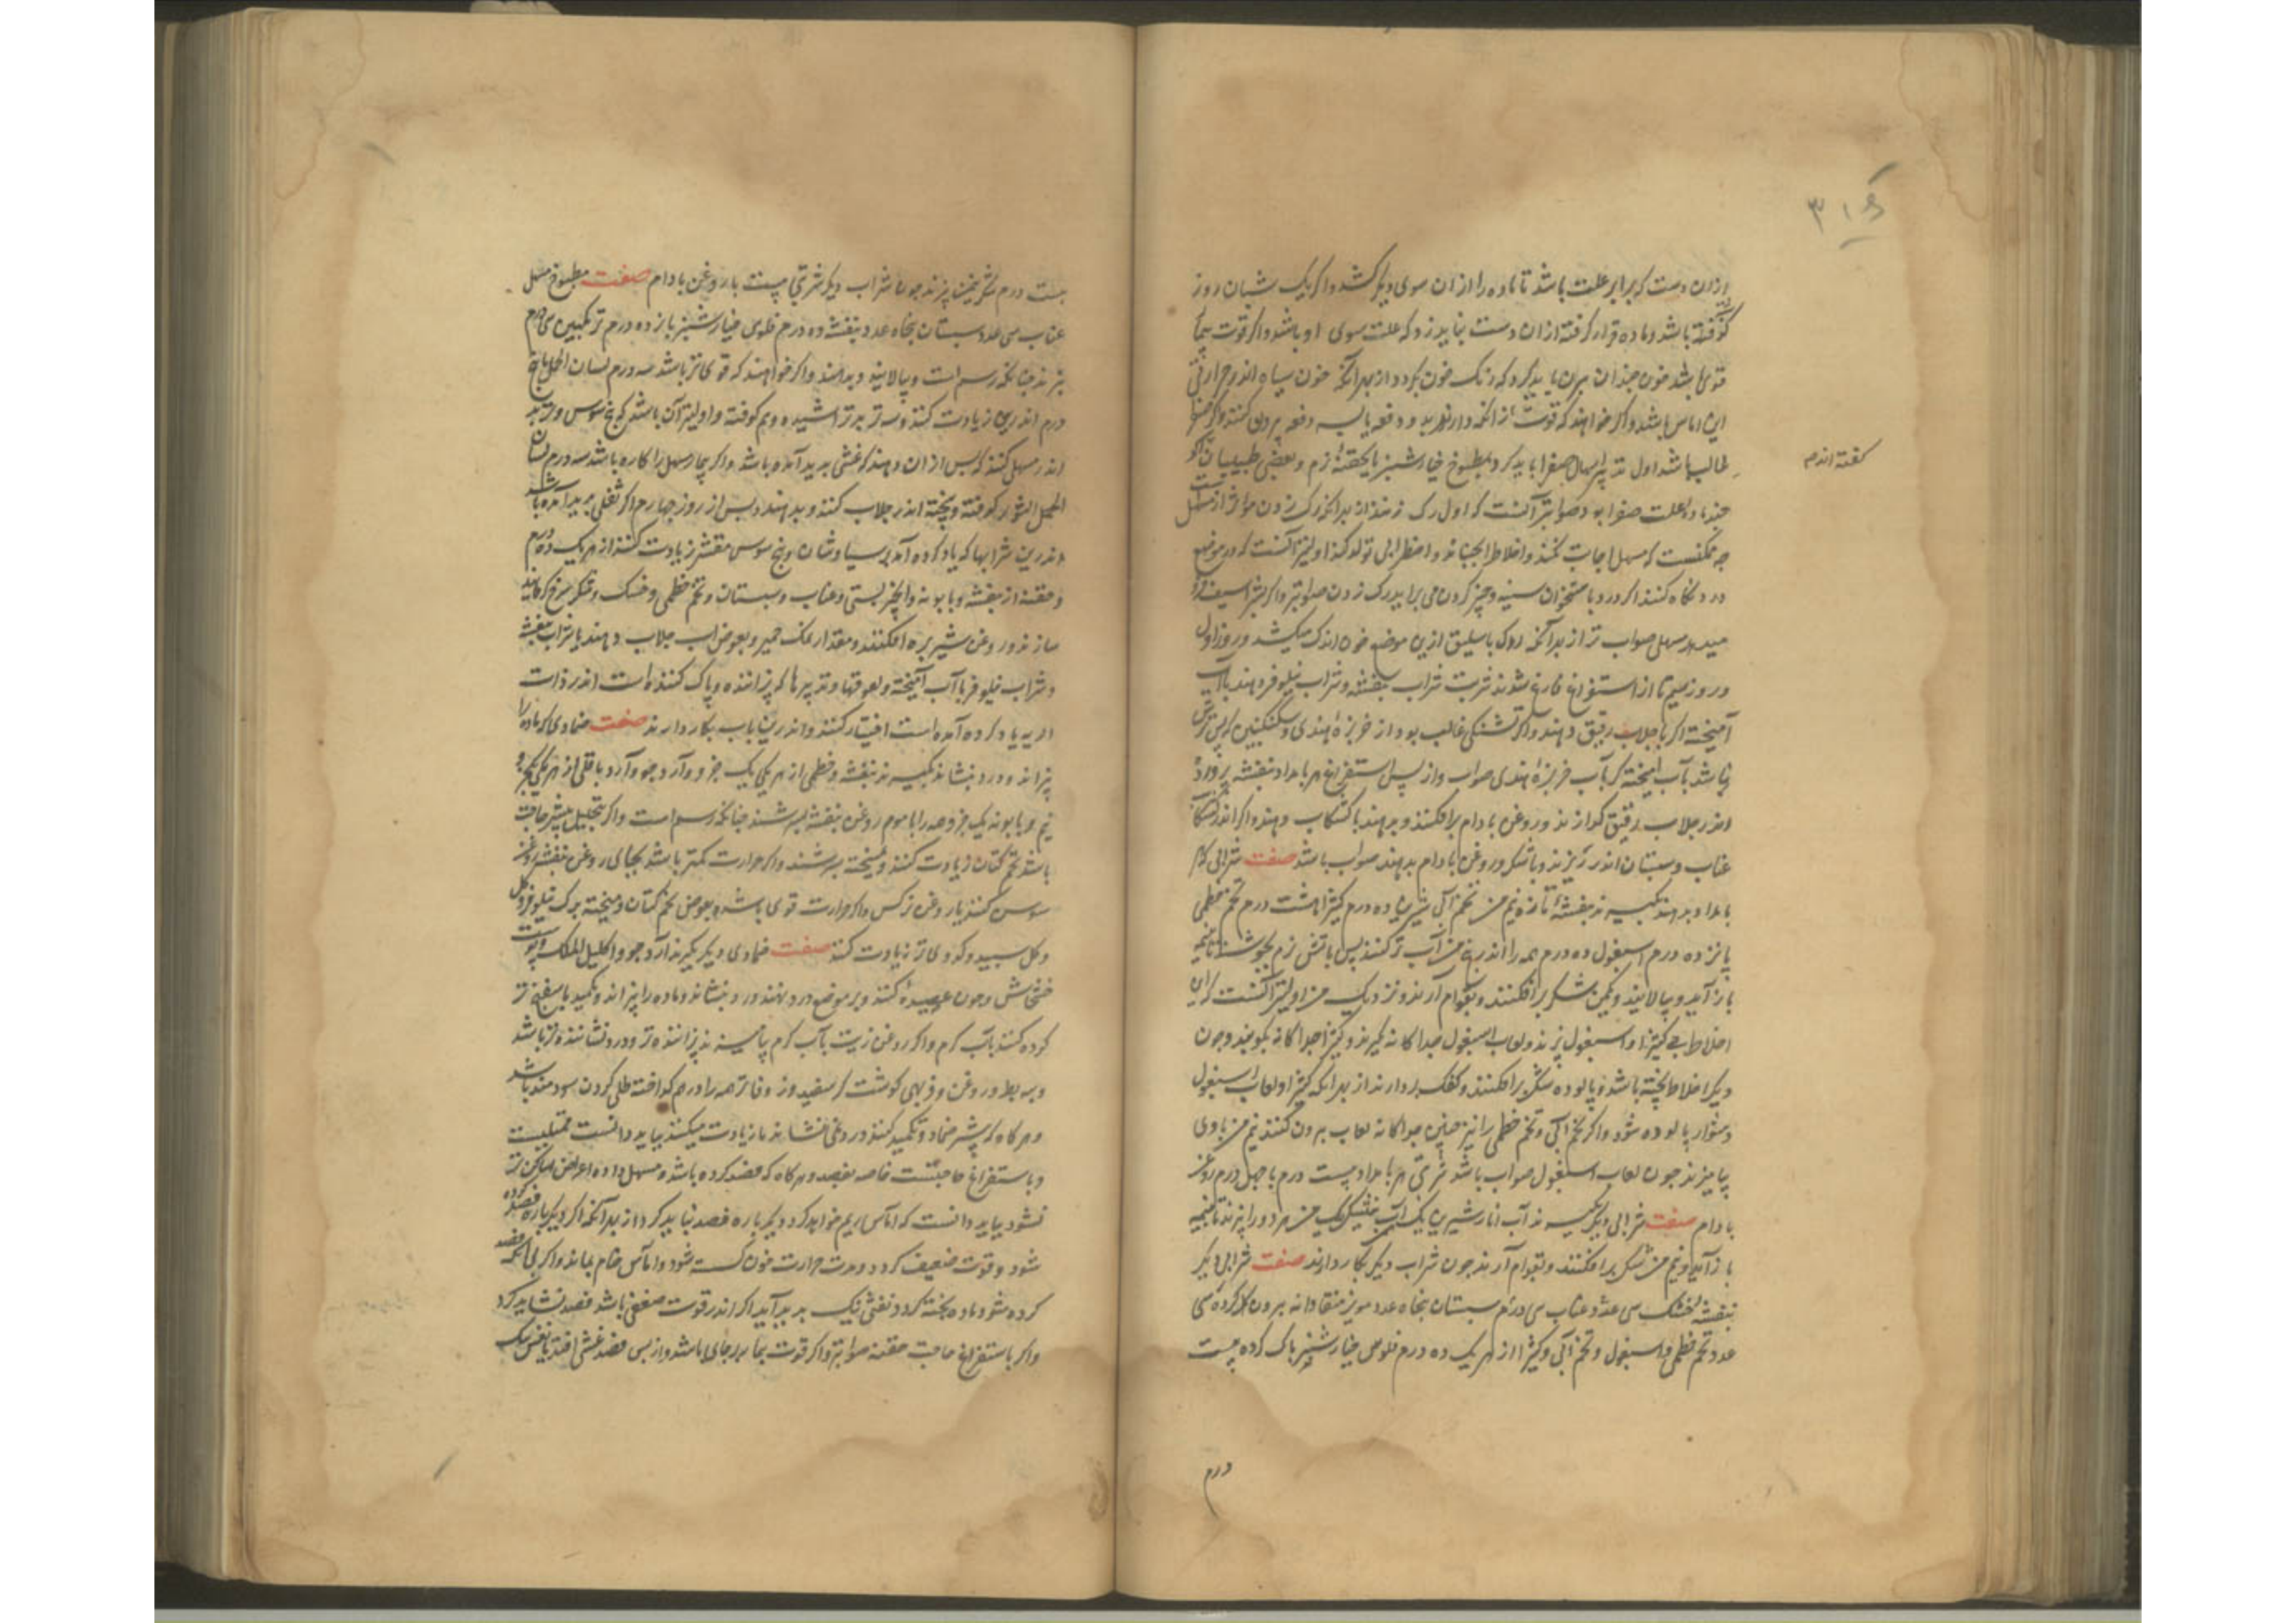 ازان دست که برابر علت باشد تا ماده را ازان سوی دیگر کشد و اگر یک شبان روز
باشد و ماده قرار گرفته ازان دست نباید زد که علت سوی او باشد و اگر قوت
قوی باشد خون چندان بیرون باید کرد که رنگ خون بگردد از بهر آنکه خون سیاه اندر حوالی
این اماس باشد و اگر خواهند که قوت نگه دارند دو دفعه یا سه دفعه بیرون کنند
غالب باشد اول تدبیر اسهال صفرا باید کرد بمطبوخ خیارشنبر یا بحقنه نرم و بعضی طبیبان
گفته اندم
ماده علت صفرا بود صواب تر آنست که اول رگ زنند از بهر آنکه رگ زدن
ممکنست که مسهل اجابت نکند و اخلاط را بجنباند و اضطرابی تولد کند اولیتر آنست که در موضع
درد نگاه کنند اگر درد با ستخوان سینه و چنبر کردن می براید رگ زدن صوابتر و اگر
مسهل صواب تر از بهر آنکه رگ باسلیق ازین موضع خون اندک میکشد و روز اول
و روز سیم تا از استفراغ فارغ شوند شربت شراب بنفشه و شراب نیلوفر دهند بآب
آمیخته اگر با جلاب رقیق دهند و اگر تشنکی غالب بود از خربزه هندی و سکنکبین که بس ترش
نباشد بآب آمیخته که بآب خربزه هندی صواب و از پس استفراغ هر بامداد بنفشه پرورده
اندر جلاب رقیق کدازند و روغن بادام برافکنند و بدهند با کشکاب دهند و اگر اندر
عناب و سبستان اندر پزند و با شکر و روغن بادام بدهند صواب باشد صفت شرابی که هر
بامداد بدهند بکیرند بنفشه تازه نیم من تخم آبی شیرین ده درم کتیرا هشت درم تخم خطمی
پانزده درم اسبغول ده درم همه را اندر پنج من آب تر کنند پس باتش نرم بجوشند تا بنیمه
باز آید و بپالایند و یکمن شکر برافکنند و بقوام آرند و نزدیک من اولیتر آنست که این
اخلاط بی کتیرا و اسبغول پزند و لعاب اسبغول جدا کانه گیرند و کتیرا جدا کانه بکوبند و چون
دیگر اخلاط پخته باشد و پالوده شکر برافکنند و کفک بردارند از بهر آنکه کتیرا و لعاب اسبغول
دشوار پالوده شود و اگر تخم آبی و تخم خطمی را نیز همچنین جدا کانه لعاب بیرون کنند نیم من با وی
بیامیزند چون لعاب اسبغول صواب باشد شربتی هر بامداد بیست درم با چهل درم روغن
بادام صفت شرابی دیگر بکیرند آب انار شیرین یک من آب نیشکر یک من هر دو را بپزند تا بنیمه
باز آید و نیم من شکر برافکنند و بقوام آرند چون شراب دیگر بکار دارند صفت شرابی دیگر
بنفشه خشک سی عدد عناب سی درم سبستان پنجاه عدد مویز منقا دانه بیرون کرده سی
عدد تخم خطمی و اسبغول و تخم آبی و کتیرا از هر یک ده درم فلوس خیارشنبر پاک کرده بیست
درم
بیست درم شکر پزند چون شراب دیگر شربتی بیست با روغن بادام صفت مطبوخ مسهل
عناب سی عدد سبستان پنجاه عدد بنفشه ده درم فلوس خیارشنبر پانزده درم ترنکبین سی درم
بپزند چنانکه رسم است و بپالایند و بدهند و اگر خواهند که قوی تر باشد سه درم لسان الحمل پنج
درم اندرین زیادت کنند و سه تربد تراشیده و نیم کوفته و اولیتر آن باشد که بیخ سوس و تربد
اندر مسهل کنند که پس از ان دهند که غشی پدید آمده باشد و اگر بیمار مسهل را کاره باشد سه درم لسان
کوفته و پخته اندر جلاب کنند و بدهند و پس از روز چهارم اگر ثفلی پدید آمده باشد
اندرین شرابها که یاد کرده آمد پرسیاوشان و بیخ سوس مقشر زیادت کنند از هر یک ده درم
و حقنه از بنفشه و بابونه و انجیر بستی و عناب و سبستان و تخم خطمی و خسک و شکر سرخ
سازند و روغن شیر بره افکنند و مقدار نمک خمیر و بعوض اب جلاب دهند یا شراب بنفشه
و شراب نیلوفر با آب آمیخته و لعوقها و تدبیرها که پزاننده و پاک کننده است اندر ذات
الریه یاد کرده آمده است اختیار کنند و اندرین باب بکار دارند صفت ضمادی که ماده را
پزاند و درد بنشاند بکیرند بنفشه و خطمی از هر یکی یک جزو و آرد جو و آرد باقلی از هر یکی یکجزو
نیم و بابونه یک جزو همه را با موم روغن بنفشه بسرشند چنانکه رسم است و اگر بتحلیل بیشتر حاجت
باشد تخم کتان زیادت کنند و میپخته بسرشند و اگر حرارت کمتر باشد بجای روغن بنفشه روغن
سوسن کنند یا روغن نرکس و اگر حرارت قوی باشد بعوض تخم کتان و میپخته برک نیلوفر و کل
و کل سپید و کدوی تر زیادت کنند صفت ضمادی دیگر بکیرند آرد جو و اکلیل الملک و پوست
خشخاش و چون عصیده کنند و بر موضع درد نهند درد بنشاند و ماده را پزاند و تکمید باسفنج تر
کرده کنند بآب گرم و اگر روغن زیت بآب گرم بیامیزند پزاننده تر و درد نشاننده تر باشد
و پیه بط و روغن و فربهی کوشت کر سفید و زوفا تر همه را درهم کداخته طلی کردن سودمند باشد
و هر گاه که بیشتر ضماد و تکمید کنند درد می ننشاند یا زیادت میکند بباید دانست ممتلیست
و باستفراغ حاجتست خاصه بفصد و هر گاه که فصد کرده باشد و مسهل داده و اعراض ساکن تر
نشود بباید دانست که آماس ریم خواهد کرد دیگر باره فصد نباید کرد از بهر آنکه اگر دیگر باره فصد کرده
شود و قوت ضعیف گردد و مدت حرارت خون کسسته شود و اماس خام بماند و اگر بی انکه فصد
کرده شود ماده پخته گردد و نفثی نیک پدید آید اگر اندر قوت ضعفی باشد فصد نشاید کرد
و اگر باستفراغ حاجت حقنه صوابتر و اگر قوت بیمار بر جای باشد و از پس فصد غشی افتد یا نفس تنک